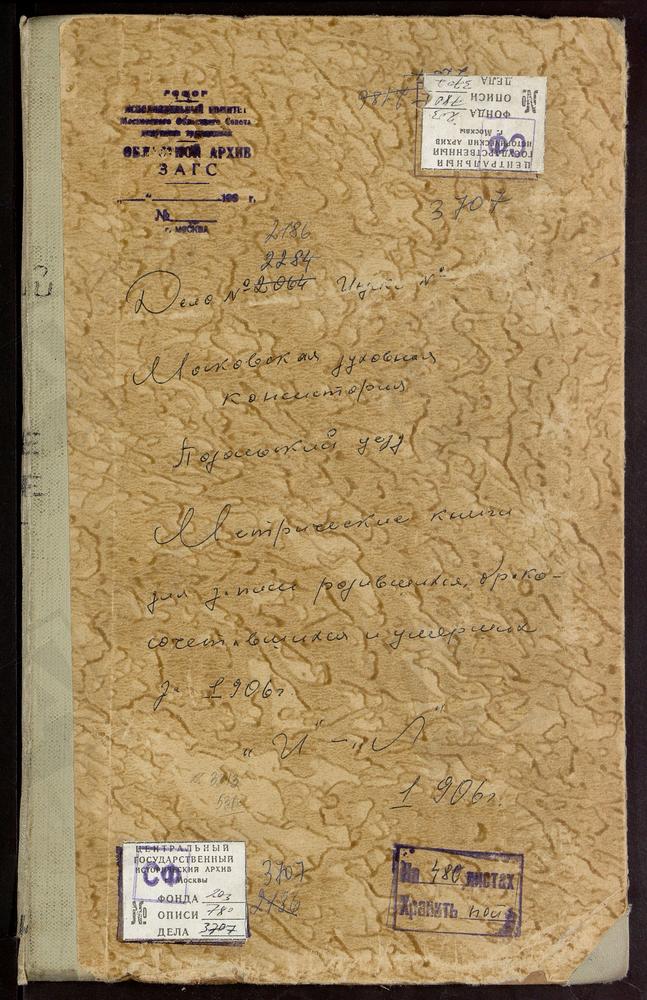 РСФСР
ИСПОЛНИТЕЛЬНЫЙ КОМИТЕТ
Московского Областного Совета
депутатов трудящихся
ОБЛАСТНОЙ АРХИВ
ЗАГС
"___" ______ 196 г.
№
г. МОСКВА
ЦЕНТРАЛЬНЫЙ
ГОСУДАРСТВЕННЫЙ
ИСТОРИЧЕСКИЙ АРХИВ
г. Москвы
СФ
ФОНДА 203
№ ОПИСИ 780
ДЕЛА 3707
3707
2186
2284
Дело № 2064 №
Московская духовная
консистория
Подольский уезд
Метрические книги
для записи родившихся, брако-
сочетавшихся и умерших
за 1906 г
"И" - "Л"
1906 г.
ЦЕНТРАЛЬНЫЙ
ГОСУДАРСТВЕННЫЙ
ИСТОРИЧЕСКИЙ АРХИВ
г. Москвы
СФ
ФОНДА 203
№ ОПИСИ 780
ДЕЛА 3707
3707
2186
На 480 листах
Хранить пост